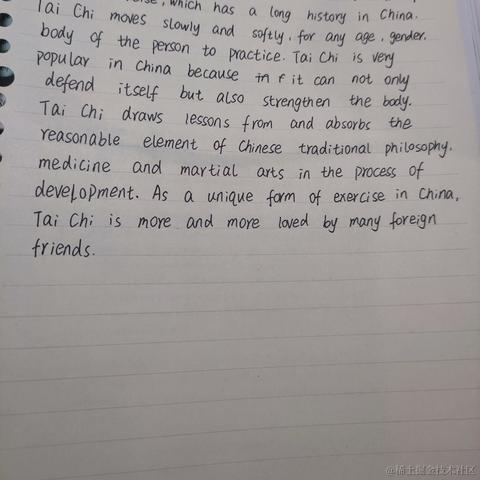 which has a long history in China.
Tai Chi moves slowly and softly, for any age, gender.
body of the person to practice. Tai Chi is very
popular in China because it can not only
defend itself but also strengthen the body.
Tai Chi draws lessons from and absorbs the
reasonable element of Chinese traditional philosophy.
medicine and martial arts in the process of
development. As a unique form of exercise in China,
Tai Chi is more and more loved by many foreign
friends.
@稀土掘金技术社区